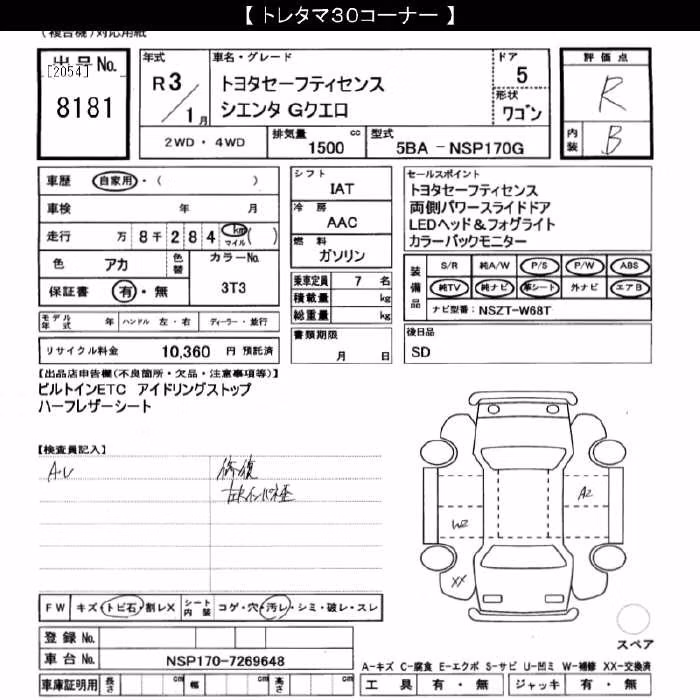 【 トレタマ30コーナー 】
(複合機)対応用紙
出品No.
[2054]
8181
年式
R 3 / 1月
車名・グレード
トヨタセーフティセンス
シエンタ Gクエロ
ドア
5
形状
ワゴン
評価点
R
内装
B
2WD ・ 4WD
排気量 1500 cc
型式 5BA － NSP170G
車歴 自家用・( )
車検 年 月
走行 万 8千 2 8 4 km マイル ( )
色 アカ
色替
カラーNo.
3T3
保証書 有・無
モデル年式 年 ハンドル 左・右 ディーラー・並行
リサイクル料金 10,360 円 預託済
シフト
IAT
冷房
AAC
燃料
ガソリン
乗車定員 7 名
積載量 kg
総重量 kg
書類期限
月 日
セールスポイント
トヨタセーフティセンス
両側パワースライドドア
LEDヘッド＆フォグライト
カラーバックモニター
装備品
S/R 純A/W P/S P/W ABS
純TV 純ナビ 革シート 外ナビ エアB
ナビ型番: NSZT-W68T
後日品
SD
【出品店申告欄(不良箇所・欠品・注意事項等)】
ビルトインETC アイドリングストップ
ハーフレザーシート
【検査員記入】
A・U
修復
A2
W2
XX
FW キズ・トビ石・割レX
シート内装 コゲ・穴・汚レ・シミ・破レ・スレ
登録No.
車台No. NSP170-7269648
車庫証明用 長さ cm 幅 cm 高さ cm
スペア
A-キズ C-腐食 E-エクボ S-サビ U-凹ミ W-補修 XX-交換済
工具 有・無 ジャッキ 有・無